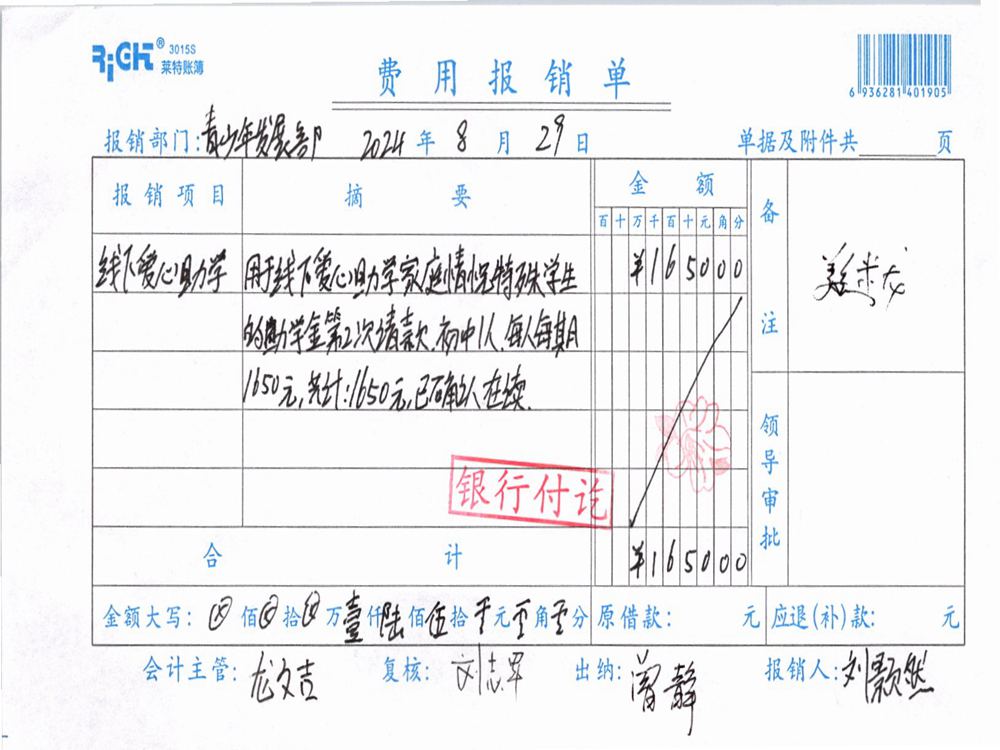 RiGHT® 3015S
莱特账簿
费用报销单
6 936281 401905
报销部门:青少年发展部 2024年8月29日 单据及附件共 页
报销项目 摘要 金额 备注
百十万千百十元角分
线下爱心助学 用于线下爱心助学家庭情况特殊学生 ¥165000
的助学金第2次请款.初中1人,每人每期
1650元,共计:1650元,已确认在续.
领导审批
银行付讫
合计 ¥165000
金额大写: 佰 拾 万壹仟陆佰伍拾 元 角 分 原借款: 元 应退(补)款: 元
会计主管:龙文吉 复核:刘志军 出纳:曾静 报销人:刘颢然